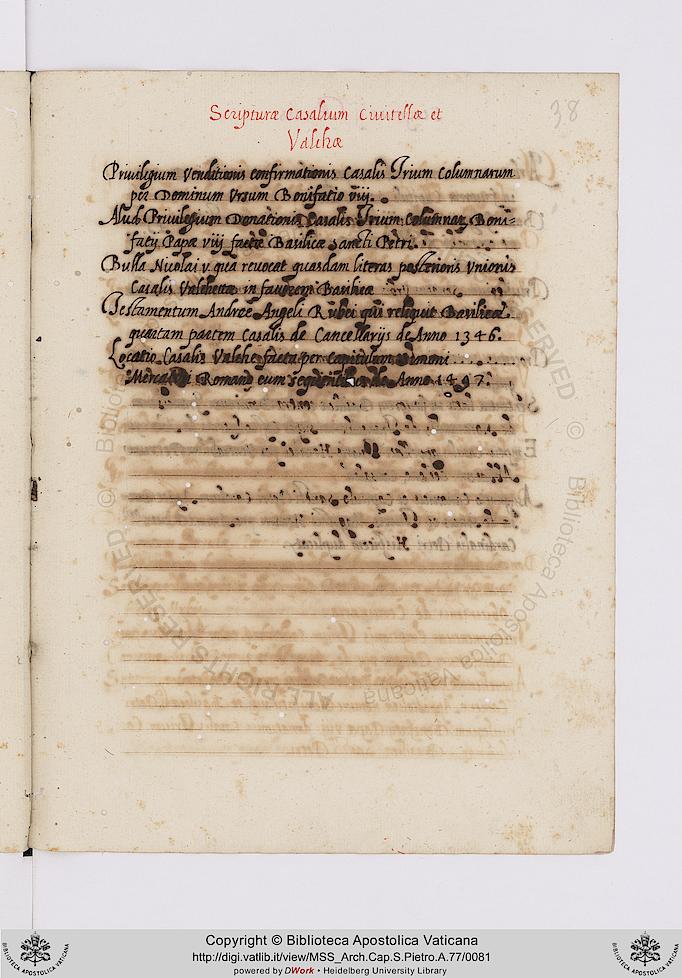 38
Scripturæ Casalium Ciuitellæ et
Valchæ
Priuilegium Venditionis confirmationis Casalis Trium Columnarum
per Dominum Vrsum Bonifatio viij.
Aliud Priuilegium Donationis Casalis Trium Columnar. Boni-
facij Papæ viij factæ Basilicæ sancti Petri.
Bulla Nicolai v. qua reuocat quasdam literas posterioris Vnionis
Casalis Valchettæ in fauorem Basilicæ
Testamentum Andreæ Angeli Rubei qui reliquit Basilicæ
quartam partem Casalis de Cancellarijs de Anno 1346.
Locatio Casalis Valche facta per Capitulum
Romano cum de Anno 1497.
Copyright © Biblioteca Apostolica Vaticana
http://digi.vatlib.it/view/MSS_Arch.Cap.S.Pietro.A.77/0081
powered by DWork • Heidelberg University Library